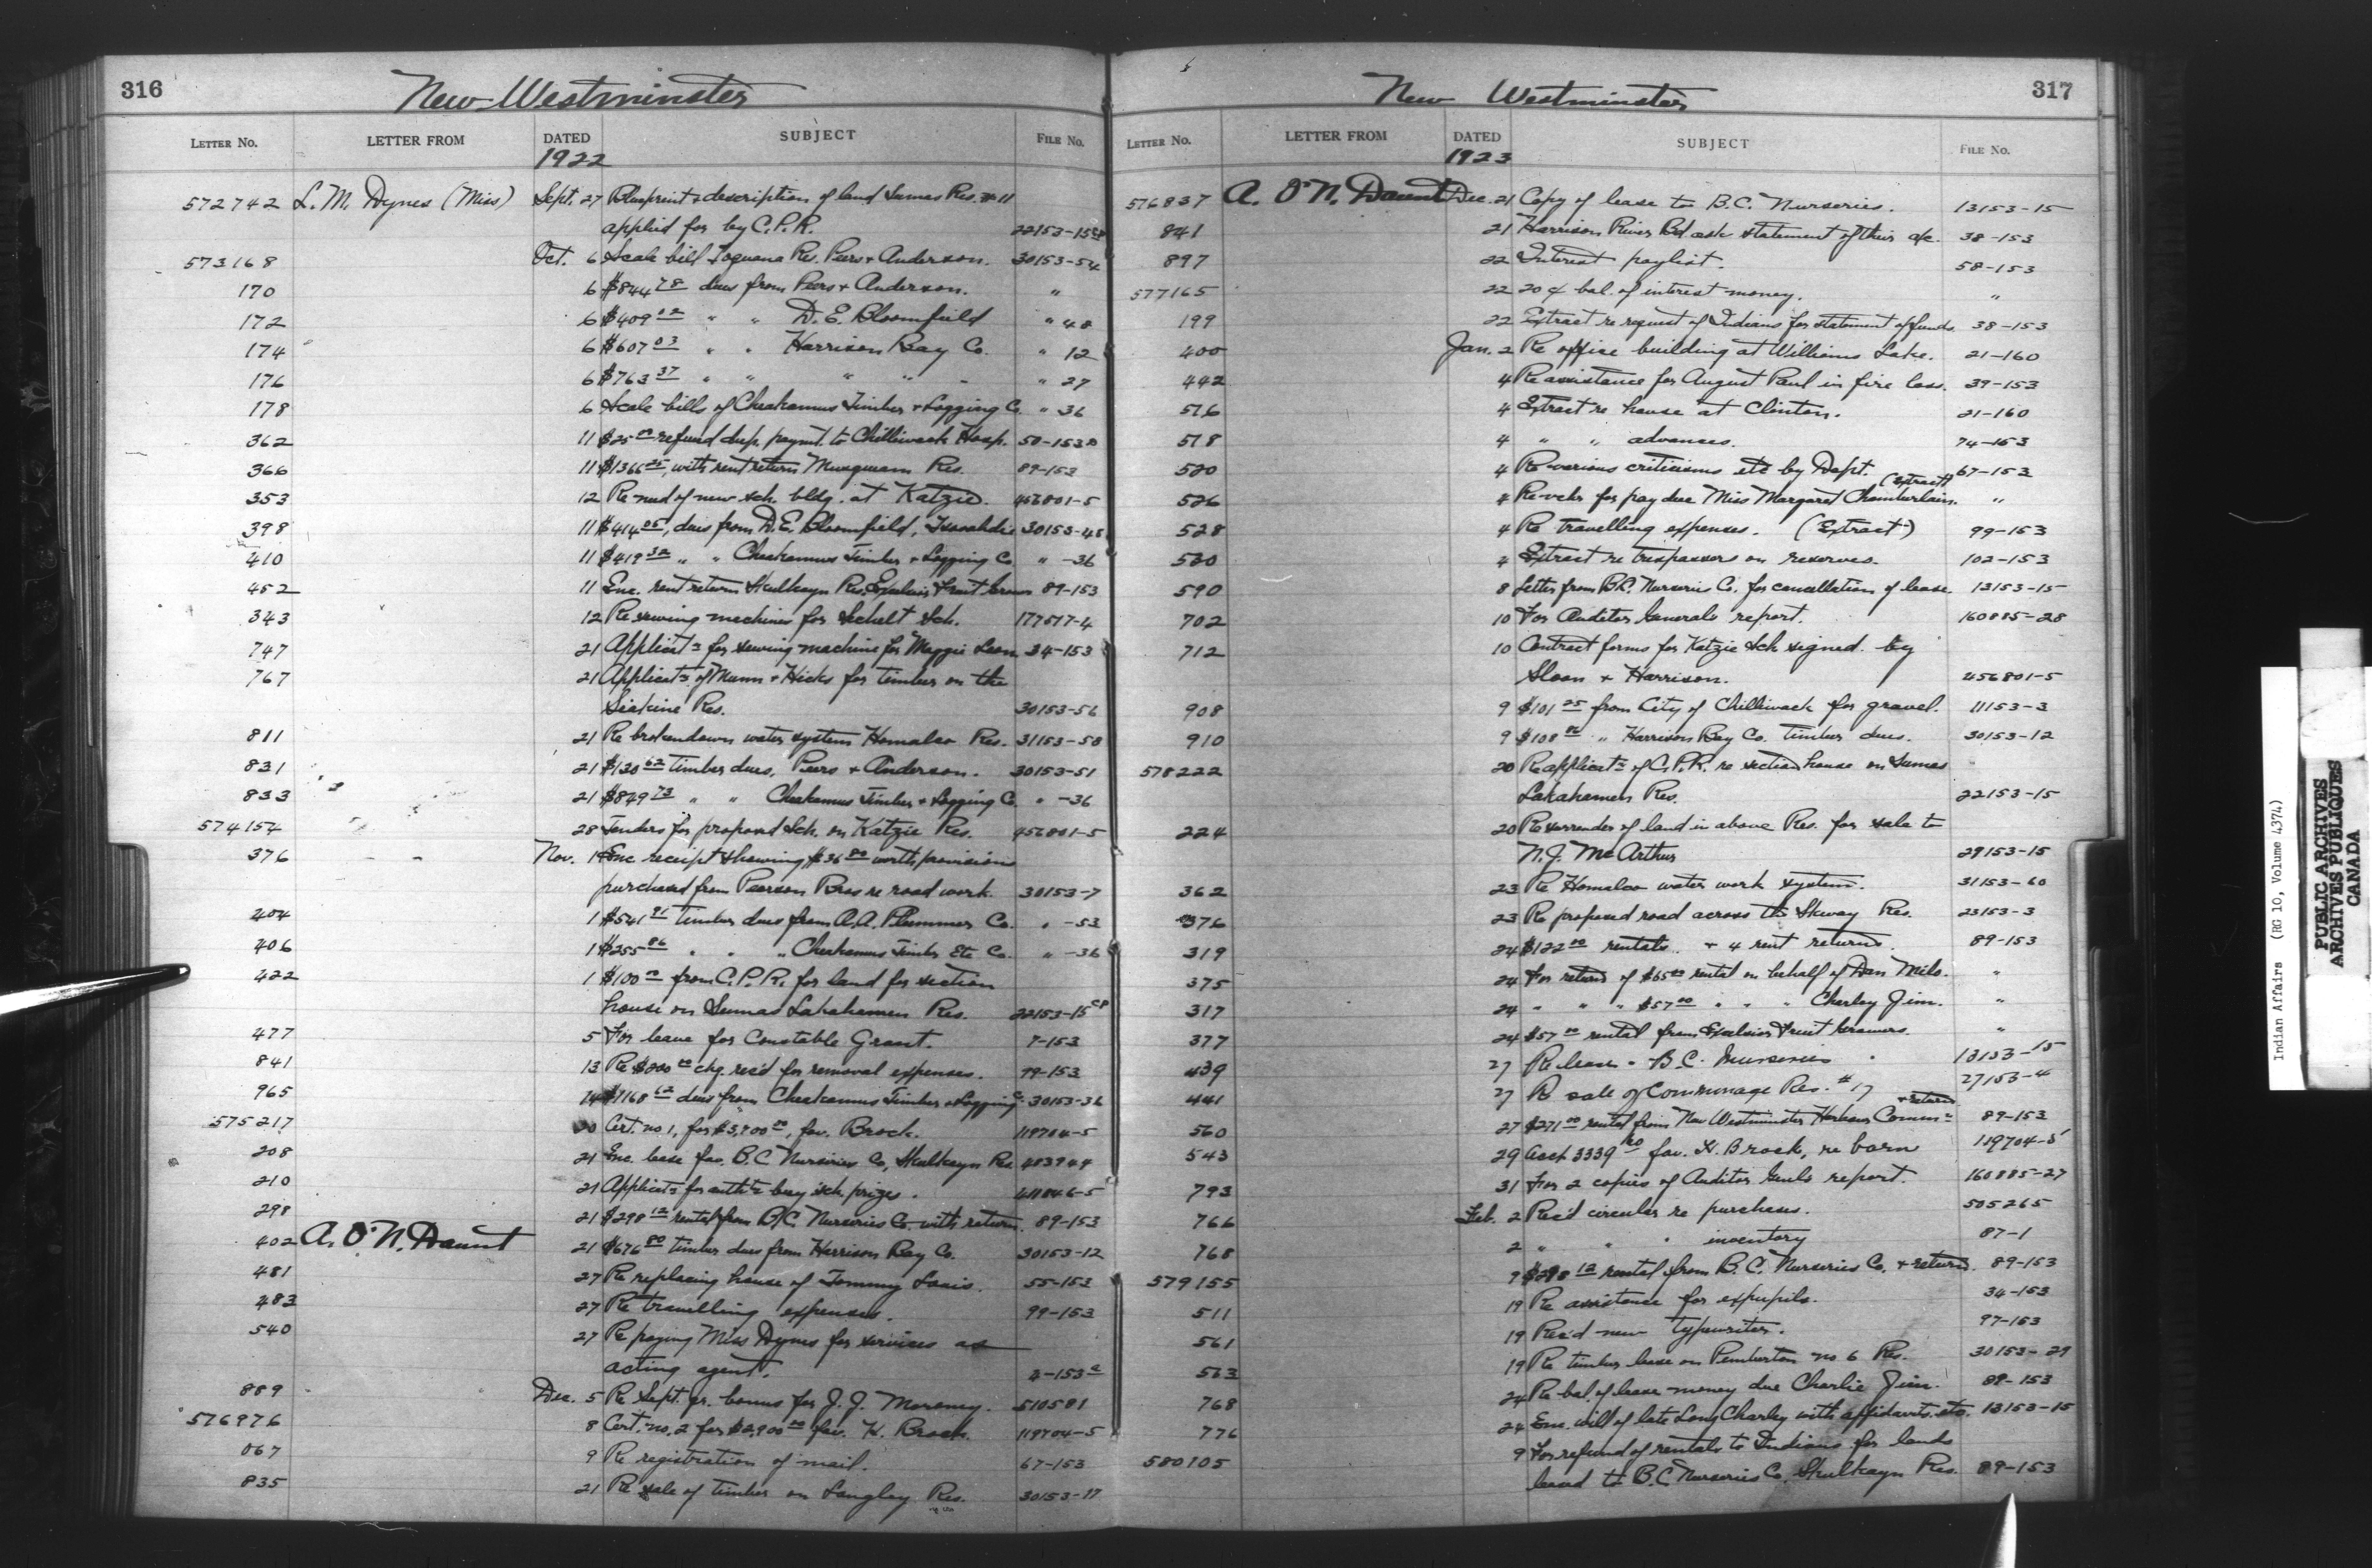 316
New Westminster
LETTER NO. LETTER FROM DATED SUBJECT FILE No.
1922
572742 L. M. Dynes (Miss) Sept. 27 Blueprint & description of land Sumas Res. # 11
applied for by C.P.R. 22153-15
573168 Oct. 6 Scale bill Res. Peers & Anderson. 30153-54
170 6 $844 78 dues from Peers & Anderson. "
172 6 $409 12 " " D. E. Bloomfield " 48
174 6 $607 03 " " Harrison Bay Co. " 12
176 6 $763 37 " " " " " 27
178 6 Scale bills of Cheakamus Timber & Logging Co. " 36
362 11 $25 00 refund dup. paymt. to Chilliwack Hosp. 50-153
366 11 $1366 25, with rent return Musqueam Res. 89-153
353 12 Re need of new sch. bldg. at Katzie. 456801-5
398 11 $414 05, dues from D. E. Bloomfield, 30153-48
410 11 $419 32 " " Cheakamus Timber & Logging Co " -36
452 11 Enc. rent return Skulkayn Res. Excelsior Fruit Growers 89-153
343 12 Re sewing machines for Sechelt Sch. 177517-4
747 21 Applicatn for sewing machine for Maggie Leon 34-153
767 21 Applicatn of Munn & Hicks for timber on the
Siakine Res. 30153-56
811 21 Re broken down water system Homalco Res. 31153-58
831 21 $130 62 timber dues, Peers & Anderson. 30153-51
833 21 $849 73 " " Cheakamus Timber & Logging Co. " -36
574154 28 Tenders for proposed Sch. on Katzie Res. 456801-5
376 Nov. 1 Enc receipt showing $36 80 worth provisions
purchased from Pearson Bros re road work. 30153-7
404 1 $541 91 timber dues from A. A. Plummer Co. " -53
406 1 $255 86 " " " Cheakamus Timber Etc Co. " -36
422 1 $100 00 from C.P.R. for land for section
house on Sumas Lakahamen Res. 22153-15 CP
477 5 For leave for Constable Grant. 7-153
841 13 Re $200 00 chq. rec'd for removal expenses. 99-153
965 14 $1168 62 dues from Cheakamus Timber & Logging Co 30153-36
575217 20 Cert. no 1, for $3,900 00, fav. Brock. 119704-5
208 21 Enc. lease fav. B.C Nurseries Co, Skulkayn Res 483944
210 21 Applicatn for auth. to buy sch. prizes.
298 21 $298 12 rental from B.C. Nurseries Co. with return. 89-153
402 A. O'N. Daunt 21 $676 80 timber dues from Harrison Bay Co. 30153-12
481 27 Re replacing house of Tommy Louis. 55-153
483 27 Re travelling expenses. 99-153
540 27 Re paying Miss Dynes for services as
acting agent. 2-153
889 Dec. 5 Re Sept. qr. bonus for J. J. 510581
576976 8 Cert. no. 2 for $2,900 00 fav. H. Brock. 119704-5
067 9 Re registration of mail. 67-153
835 21 Re sale of timber on Langley Res. 30153-17
317
New Westminster
LETTER NO. LETTER FROM DATED SUBJECT FILE No.
1923
576837 A. O'N. Daunt Dec. 21 Copy of lease to B.C. Nurseries. 13153-15
841 21 Harrison River Bd ask statement of their a/c. 38-153
897 22 Interest paylist. 58-153
577165 22 20 ¢ bal. of interest money. "
199 22 Extract re request of Indians for statement of funds. 38-153
400 Jan. 2 Re office building at Williams Lake. 21-160
442 4 Re assistance for August Paul in fire loss. 39-153
516 4 Extract re house at Clinton. 21-160
518 4 " " advances. 74-153
520 4 Re various criticisms etc by Dept. 67-153
(Extract)
526 4 Re vchr for pay due Miss Margaret Chamberlain. "
528 4 Re travelling expenses. (Extract) 99-153
530 4 Extract re trespassers on reserves. 102-153
590 8 Letter from B.C. Nurseries Co. for cancellation of lease. 13153-15
702 10 For Auditor Generals report. 160885-28
712 10 Contract forms for Katzie Sch signed by
Sloan & Harrison. 456801-5
908 9 $101 25 from City of Chilliwack for gravel. 11153-3
910 9 $108 86 " Harrison Bay Co. timber dues. 30153-12
578222 20 Re applicatn of C.P.R. re section house on Sumas
Lakahamen Res. 22153-15
224 20 Re surrender of land in above Res. for sale to
N. J. McArthur 29153-15
362 23 Re Homalco water work system. 31153-60
376 23 Re proposed road across the Skway Res. 23153-3
319 24 $122 00 rentals & 4 rent returns. 89-153
375 24 For return of $65 00 rental on behalf of Dan Milo. "
317 24 " " " $57 00 " " " Charley Jim. "
377 24 $57 00 rental from Excelsior Fruit Growers. "
439 27 Re lease - B.C. Nurseries 13153-15
441 27 Re sale of Commonage Res. # 17 27153-4
& return
560 27 $271 00 rental from New Westminster Harbour Comm. 89-153
543 29 Acct 3339 80 fav. H. Brock, re barn 119704-5
793 31 For 2 copies of Auditor Genls report. 160885-27
766 Feb. 2 Rec'd circular re purchases. 505265
768 2 " " " inventory 87-1
579155 9 $298 12 rental from B.C. Nurseries Co. & return. 89-153
511 19 Re assistance for expupils. 34-153
561 19 Rec'd new typewriter. 97-153
563 19 Re timber lease on Pemberton no 6 Res. 30153-29
768 24 Re bal. of lease money due Charlie Jim. 89-153
776 24 Enc. will of late Long Charley with affidavits etc. 13153-15
580105 9 For refund of rentals to Indians for lands
leased to B.C Nurseries Co, Skulkayn Res. 89-153
Indian Affairs (RG 10, Volume 4374)
PUBLIC ARCHIVES
ARCHIVES PUBLIQUES
CANADA